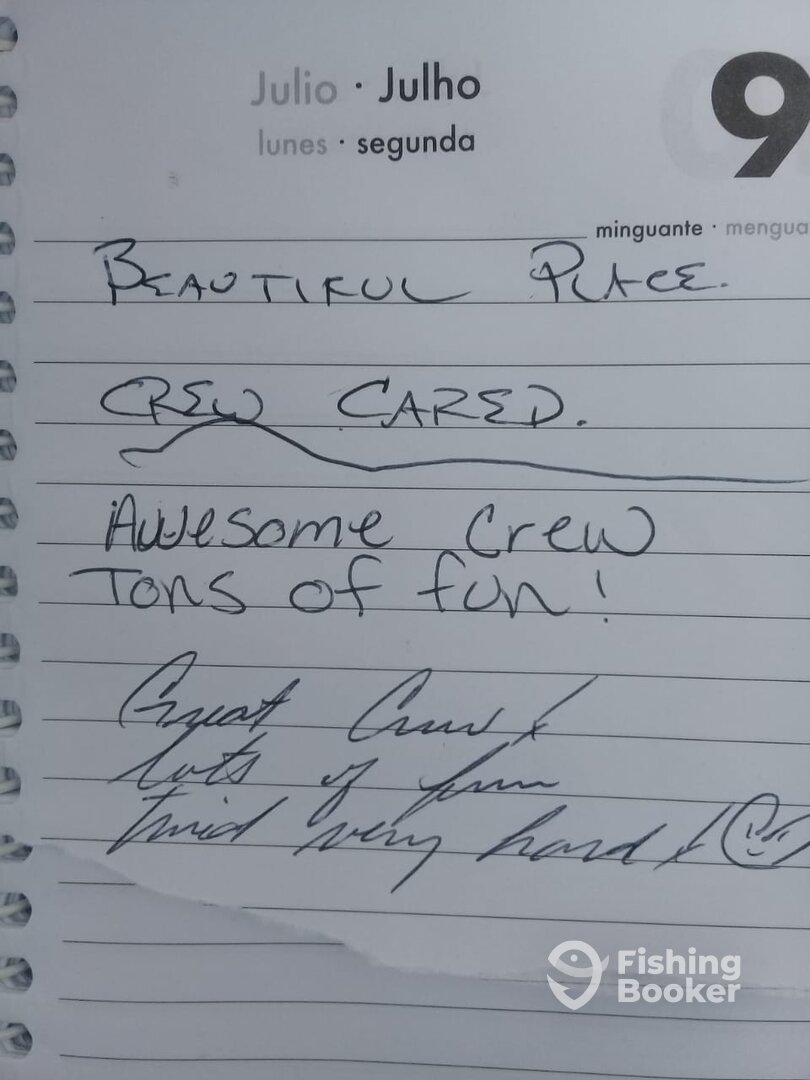 Julio · Julho
lunes · segunda
9
minguante · mengua
BEAUTIFUL PLACE.
CREW CARED.
Awesome Crew
Tons of fun!
Great Crew!
Lots of fun
tried very hard!
Fishing
Booker